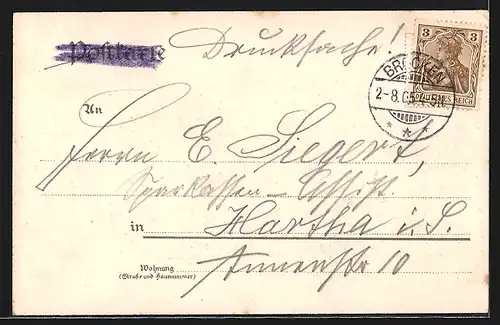 Postkarte
Drucksache!
3 3
DEUTSCHES REICH
BROCKEN
2-8.05
An
Herrn E. Siegert,
Sparkassen-Assist.
in Hartha i. S.
Wohnung
(Straße und Hausnummer)
Annenstr 10